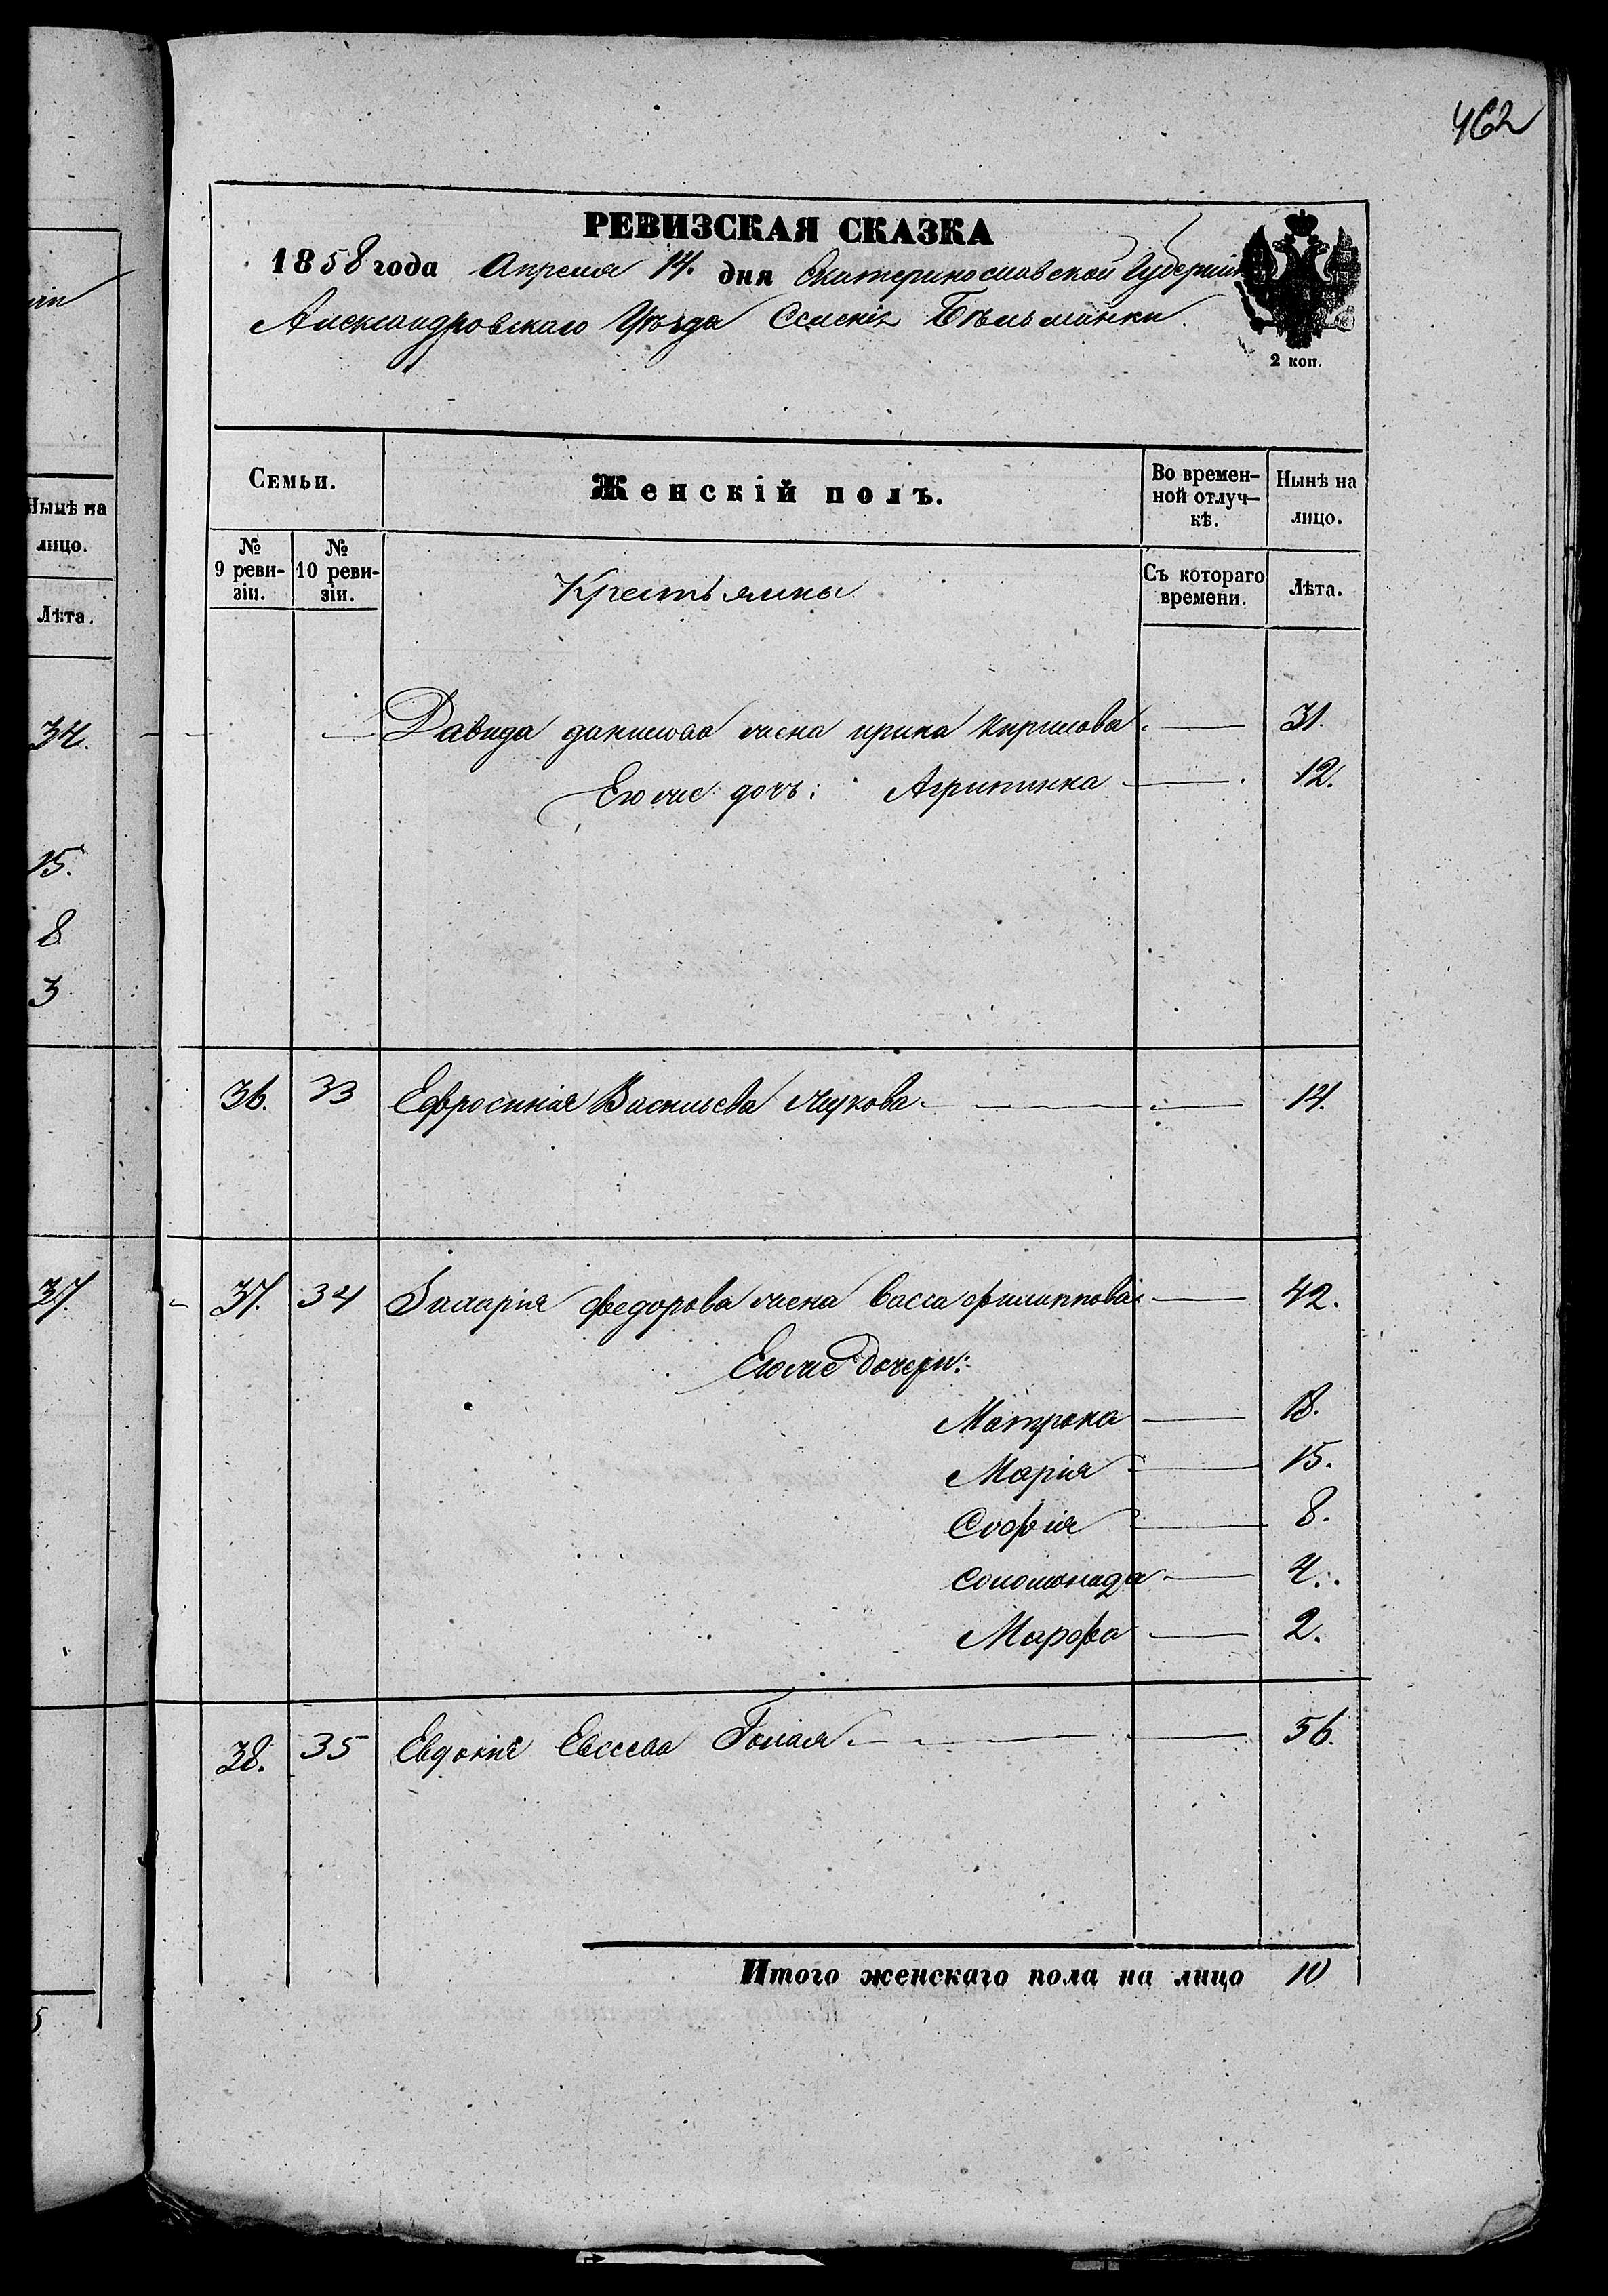 462
РЕВИЗСКАЯ СКАЗКА
1858 года Апреля 14. дня Екатеринославской Губерніи
Александровскаго Уѣзда Селенія Бѣльманки.
2 коп.
Семьи. Женскій полъ. Во времен-ной отлуч-кѣ. Нынѣ на лицо.
№ 9 реви-зіи. № 10 реви-зіи. Крестьяны Съ котораго времени. Лѣта.
Давида данилова жена ирина кирилова 31.
Его же дочь: Агрипина 12.
36. 33 Ефросинія Васильева Жукова 14.
37. 34 Захарія федорова жена васса филиппова 42.
Его же Дочери:
Матрона 18.
Марія 15.
Софія 8.
Соломонида 4.
Марфа 2.
38. 35 Евдокія Евсеева Голая 56.
Итого женскаго пола на лицо 10
Нынѣ на
лицо.
Лѣта.
34.
15.
8
3
37.
5